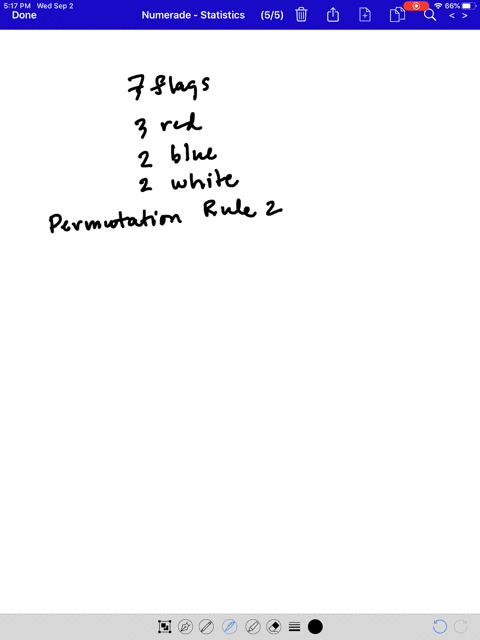 5:17 PM Wed Sep 2
66%
Done
Numerade - Statistics
(5/5)
7 flags
3 red
2 blue
2 white
Permutation Rule 2